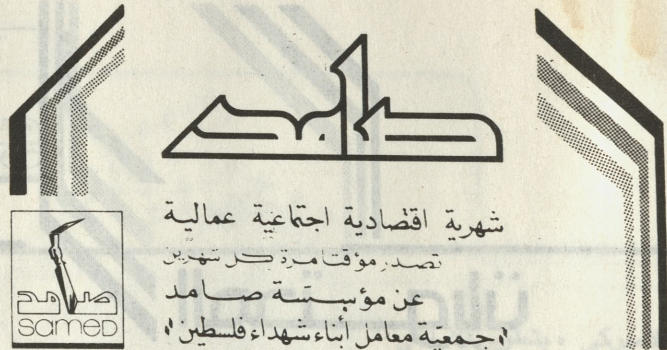 صامد
شهرية اقتصادية اجتماعية عمالية
تصدر مؤقتا مرة كل شهرين
عن مؤسسة صامد
"جمعية معامل أبناء شهداء فلسطين"
صامد
SAMED